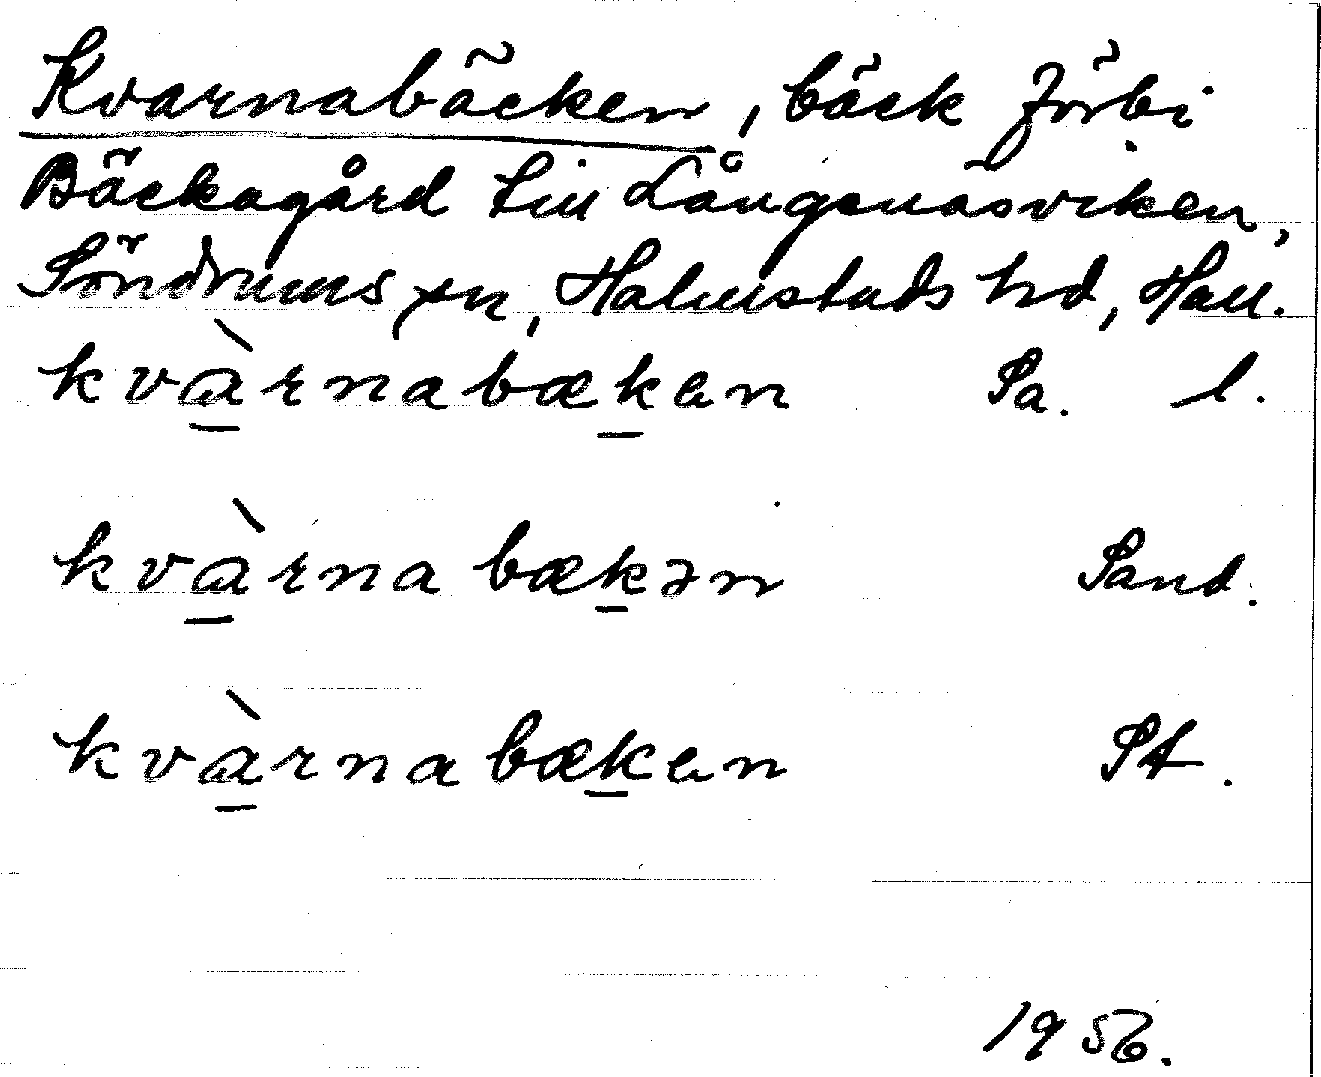 Kvarnabäcken, bäck förbi
Bäckagård till Långenäsviken,
Söndrums sn, Halmstads hd, Hall.
kvàrnabæken Sa. l.
kvàrnabækən Sand.
kvàrnabæken St.
1956.